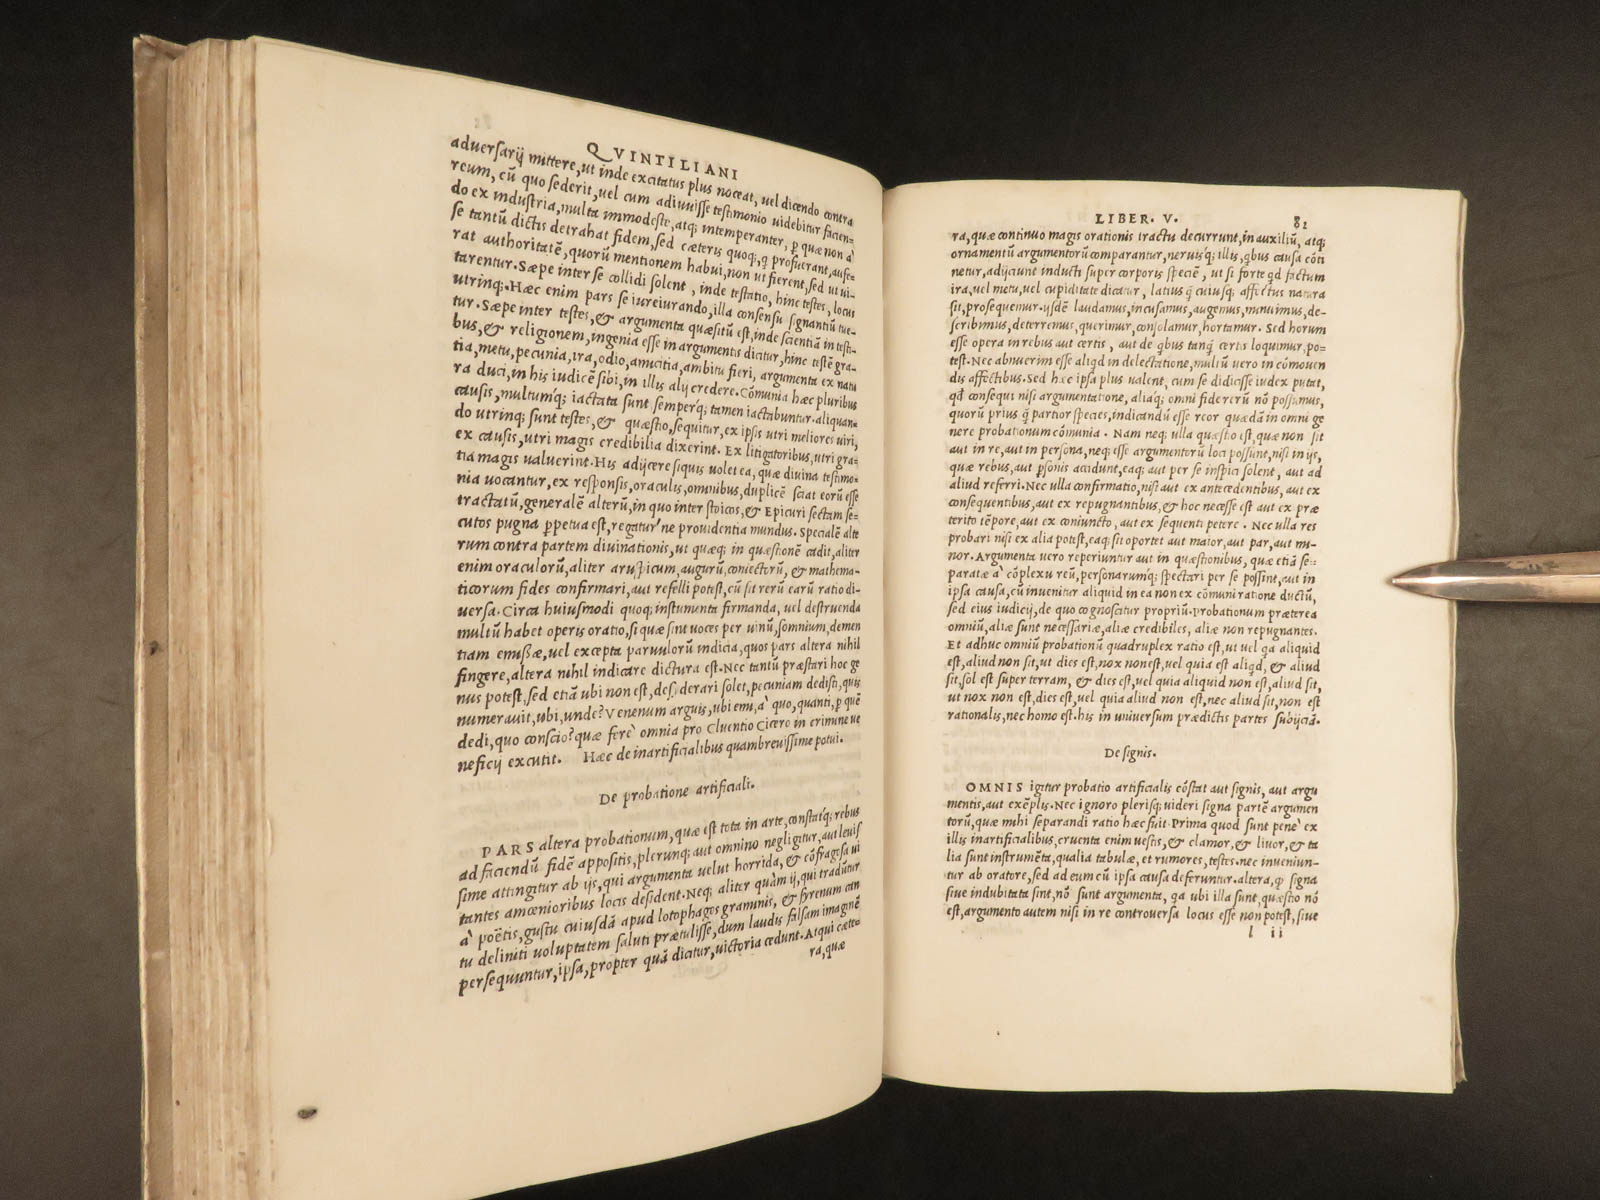 QVINTILIANI
adversarij mittere, ut inde excitatus plus noceat, uel dicendo contra
reum, cũ quo sederit, uel cum adiuuisse testimonio uidebitur facien-
do ex industria, multa immodeste, atq; intemperanter, ꝑ quæ non à
se tantũ dictis detrahat fidem, sed cæteris quoq;, q̃ profuerant, aufe-
rat authoritatẽ, quorũ mentionem habui, non ut fierent, sed ut ui-
tarentur. Sæpe inter se collidi solent, inde testatio, hinc testes, locus
utrinq;. Hæc enim pars se iureiurando, illa consensu signantiũ tue-
tur. Sæpe inter testes, & argumenta quæsitũ est, inde scientiã in testi-
bus, & religionem, ingenia esse in argumentis dicitur, hinc testẽ gra-
tia, metu, pecunia, ira, odio, amicitia, ambitu fieri, argumenta ex natu
ra duci, in his iudicẽ sibi, in illis alij credere. Cõmunia hæc pluribus
causis, multumq; iactata sunt semperq; tamen iactabuntur. aliquan-
do utrinq; sunt testes, & quæstio, sequitur, ex ipsis utri meliores uiri,
ex causis, utri magis credibilia dixerint. Ex litigatoribus, utri gra-
tia magis ualuerint. His adijcere siquis uolet ea, quæ diuina testimo-
nia uocantur, ex responsis, oraculis, omnibus, duplicẽ sciat eorũ esse
tractatũ, generalẽ alterũ, in quo inter stoicos, & Epicuri sectam se-
cutos pugna ꝑpetua est, regatur ne prouidentia mundus. Specialẽ alte
rum contra partem diuinationis, ut quæq; in quæstionẽ cadit, aliter
enim oraculorũ, aliter aruspicum, augurũ, coniectorũ, & mathema-
ticorum fides confirmari, aut refelli potest, cũ sit rerũ earũ ratio di-
uersa. Circa huiusmodi quoq; instumenta firmanda, uel destruenda
multũ habet operis oratio, si quæ sint uoces per uinũ, somnium, demen
tiam emissæ, uel excepta paruulorũ indicia, quos pars altera nihil
fingere, altera nihil indicare dictura est. Nec tantũ præstari hoc ge
nus potest, sed etiã ubi non est, desyderari solet, pecuniam dedisti, quis
numerauit, ubi, unde? Venenum arguis, ubi emi, à quo, quanti, ꝑ quẽ
dedi, quo conscio? quæ ferè omnia pro Cluentio Cicero in crimine ue
neficij excutit. Hæc de inartificialibus quambreuissime potui.
De probatione artificiali.
PARS altera probationum, quæ est tota in arte, constatq; rebus
ad faciendũ fidẽ appositis, plerunq; aut omnino negligitur, aut leuis
sime attingitur ab ijs, qui argumenta uelut horrida, & cõfragosa ui
tantes amœnioribus locis desident. Neq; aliter quàm ij, qui tradũtur
à poẽtis, gustu cuiusdã apud lotophagos graminis, & syrenum can
tu deliniti uoluptatem saluti prætulisse, dum laudis falsam imaginẽ
persequuntur, ipsa, propter quã dicitur, uictoria cedunt. Atqui cæte-
ra, quæ
LIBER. V. 81
ra, quæ continuo magis orationis tractu decurrunt, in auxiliũ, atq;
ornamentũ argumentorũ comparantur, neruisq; illis, qbus causa cõti
netur, adijciunt inducti super corporis speciẽ, ut si forte qd factum
ira, uel metu, uel cupiditate dicatur, latius q̃ cuiusq; affectus natura
sit, prosequemur. ijsdẽ laudamus, incusamus, augemus, minuimus, de-
scribimus, deterremus, querimur, consolamur, hortamur. Sed horum
esse opera in rebus aut certis, aut de qbus tanq̃ certis loquimur, po-
test. Nec abnuerim esse aliqd in delectatione, multũ uero in cõmouen
dis affectibus. Sed hæc ipsa plus ualent, cum se didicisse iudex putat,
qd consequi nisi argumentatione, aliaq; omni fide rerũ nõ possumus,
quorũ prius q̃ partior species, indicandũ esse reor quædã in omni ge
nere probationum cõmunia. Nam neq; ulla quæstio est, quæ non sit
aut in re, aut in persona, neq; esse argumentorũ loci possunt, nisi in ijs,
quæ rebus, aut ꝑsonis accidunt, eaq; aut per se inspici solent, aut ad
aliud referri. Nec ulla confirmatio, nisi aut ex antecedentibus, aut ex
consequentibus, aut ex repugnantibus, & hoc necesse est aut ex præ
terito tẽpore, aut ex coniuncto, aut ex sequenti petere. Nec ulla res
probari nisi ex alia potest, eaq; sit oportet aut maior, aut par, aut mi-
nor. Argumenta uero reperiuntur aut in quæstionibus, quæ etiã se-
paratæ à cõplexu reũ, personarumq; spectari per se possint, aut in
ipsa causa, cũ inuenitur aliquid in ea non ex cõmuni ratione ductũ,
sed eius iudicij, de quo cognoscatur propriũ. Probationum præterea
omniũ, aliæ sunt necessariæ, aliæ credibiles, aliæ non repugnantes.
Et adhuc omniũ probationũ quadruplex ratio est, ut uel qa aliquid
est, aliud non sit, ut dies est, nox non est, uel quia est aliqd, & aliud
sit, sol est super terram, & dies est, uel quia aliquid non est, aliud sit,
ut nox non est, dies est, uel quia aliud non est, nec aliud sit, non est
rationalis, nec homo est. his in uniuersum prædictis partes subijciã.
De signis.
OMNIS igitur probatio artificialis cõstat aut signis, aut argu
mentis, aut exẽplis. Nec ignoro plerisq; uideri signa partẽ argumen
torũ, quæ mihi separandi ratio hæc fuit. Prima quod sunt penè ex
illis inartificialibus, cruenta enim uestis, & clamor, & liuor, & ta
lia sunt instrumẽta, qualia tabulæ, et rumores, testes. nec inueniun-
tur ab oratore, sed ad eum cũ ipsa causa deferuntur. altera, ꝙ signa
siue indubitata sint, nõ sunt argumenta, qa ubi illa sunt, quæstio nõ
est, argumento autem nisi in re controuersa locus esse non potest, siue
l ii